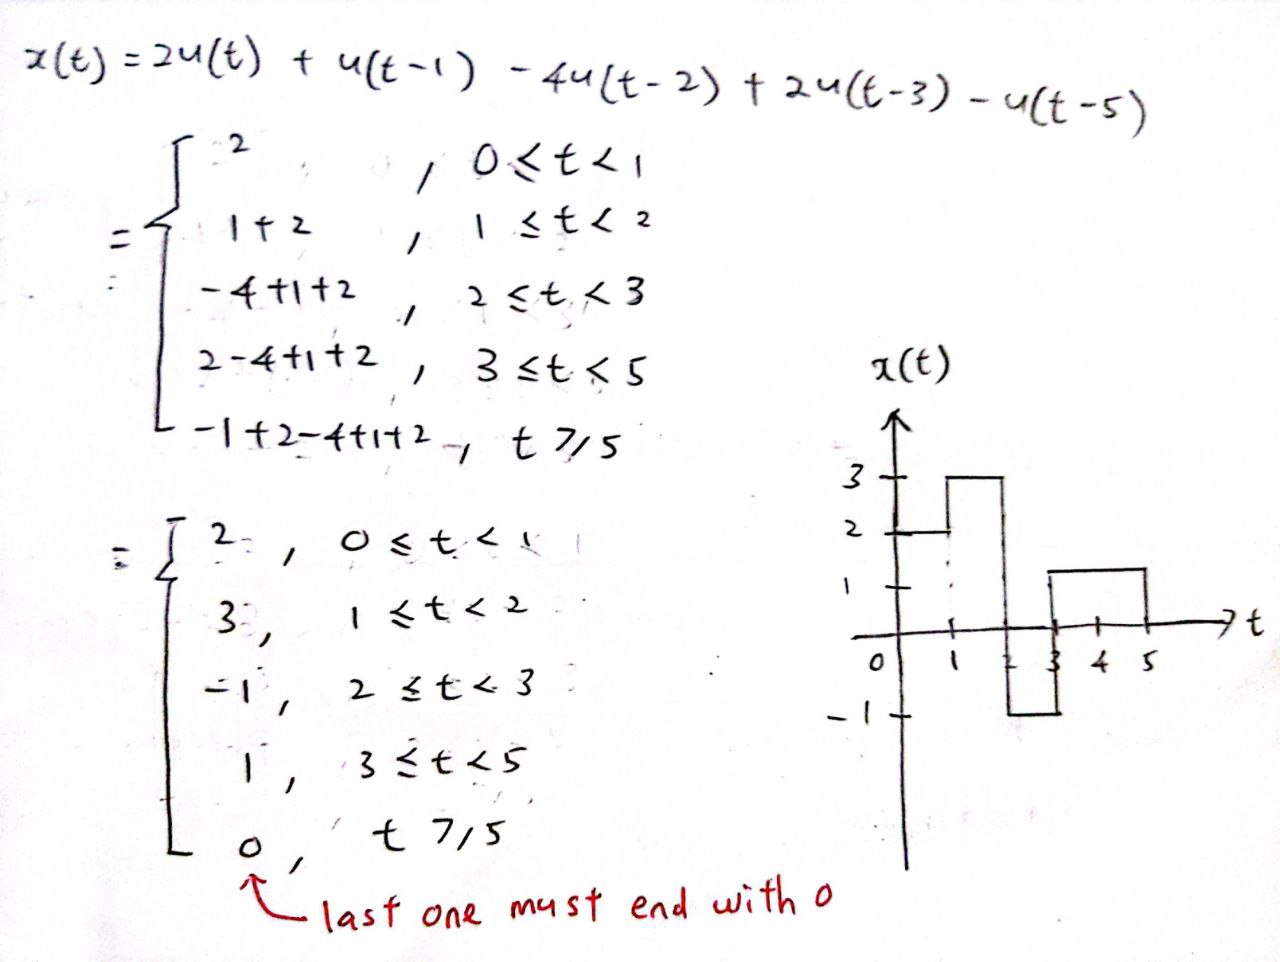 x(t) = 2u(t) + u(t-1) - 4u(t-2) + 2u(t-3) - u(t-5)
= { 2 , 0 ≤ t < 1
1+2 , 1 ≤ t < 2
-4+1+2 , 2 ≤ t < 3
2-4+1+2 , 3 ≤ t < 5
-1+2-4+1+2 , t ≥ 5
= { 2 , 0 ≤ t < 1
3 , 1 ≤ t < 2
-1 , 2 ≤ t < 3
1 , 3 ≤ t < 5
0 , t ≥ 5
last one must end with 0
x(t)
3
2
1
0 1 2 3 4 5 t
-1